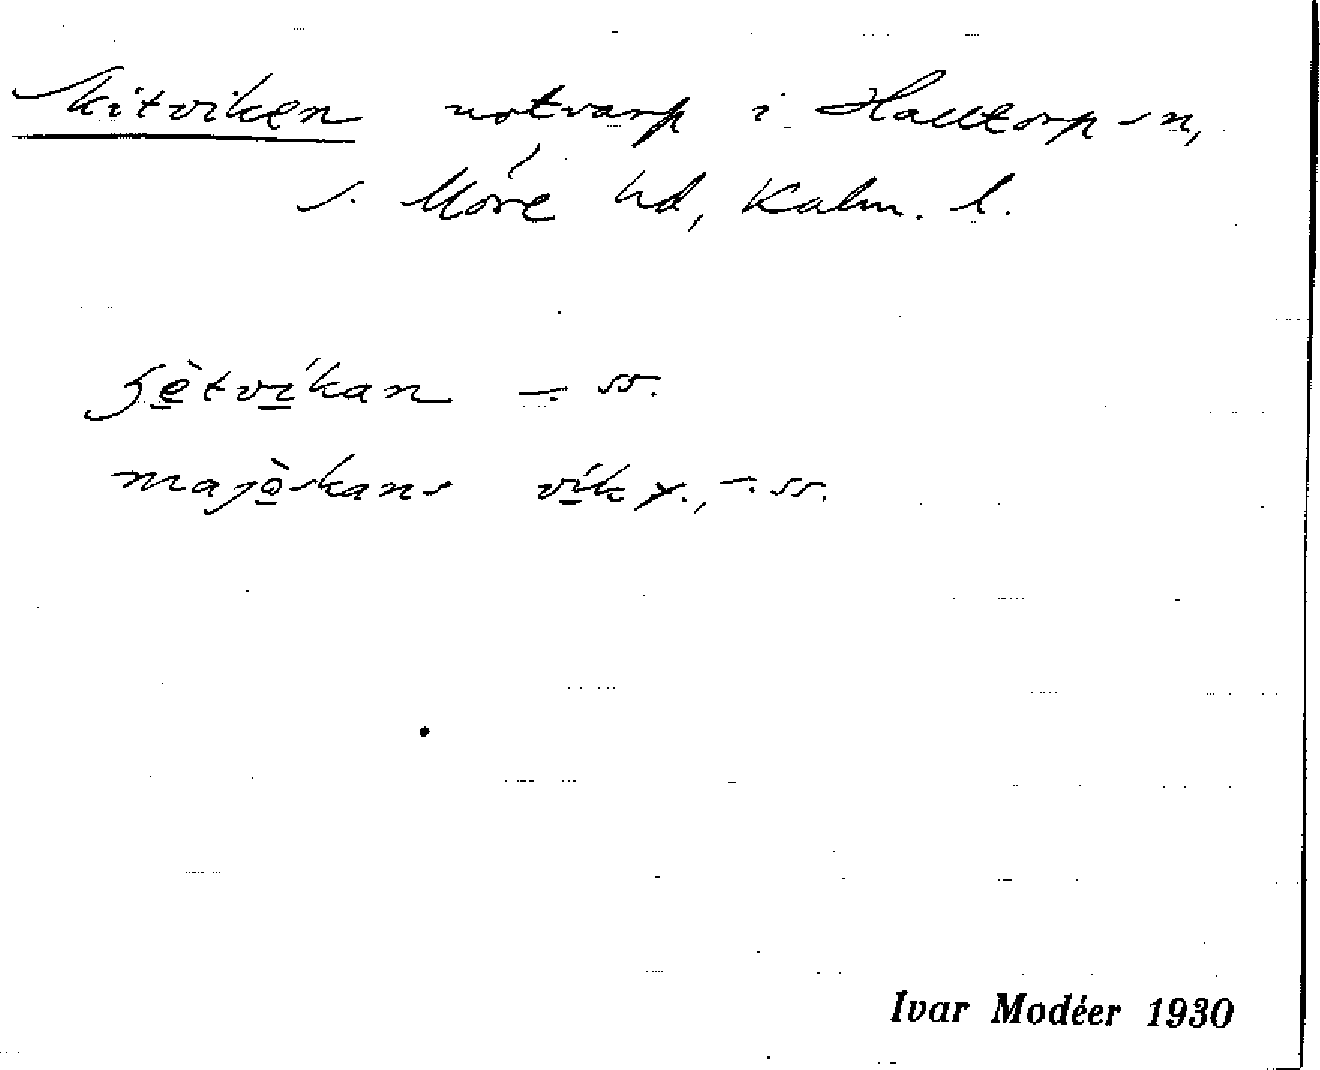 Skitviken notvarp i Halltorp sn,
s. Möre hd, Kalm. l.
ʃètvíkan – ss.
majòskans vík γ., – ss.
Ivar Modéer 1930